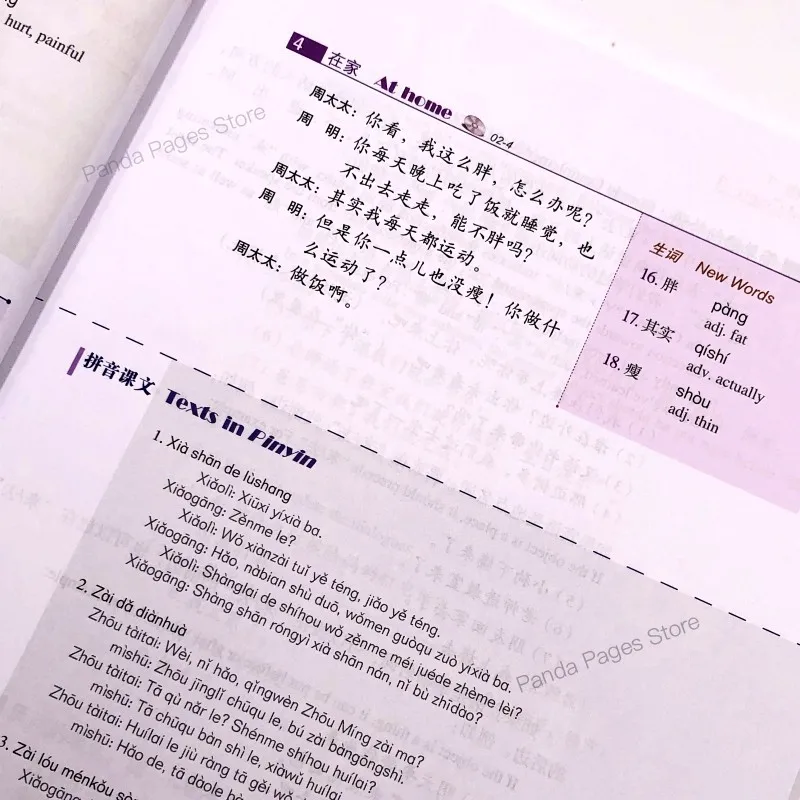 hurt, painful
4 在家 At home 02-4
周太太：你看，我这么胖，怎么办呢？
周 明：你每天晚上吃了饭就睡觉，也
不出去走走，能不胖吗？
周太太：其实我每天都运动。
周 明：但是你一点儿也没瘦！你做什
么运动了？
周太太：做饭啊。
生词 New Words
16. 胖 pàng
adj. fat
17. 其实 qíshí
adv. actually
18. 瘦 shòu
adj. thin
拼音课文 Texts in Pinyin
1. Xià shān de lùshang
Xiǎolì: Xiūxi yíxià ba.
Xiǎogāng: Zěnme le?
Xiǎolì: Wǒ xiànzài tuǐ yě téng, jiǎo yě téng.
Xiǎogāng: Hǎo, nàbian shù duō, wǒmen guòqu zuò yíxià ba.
Xiǎolì: Shànglai de shíhou wǒ zěnme méi juéde zhème lèi?
Xiǎogāng: Shàng shān róngyì xià shān nán, nǐ bù zhīdào?
2. Zài dǎ diànhuà
Zhōu tàitai: Wèi, nǐ hǎo, qǐngwèn Zhōu Míng zài ma?
mìshū: Zhōu jīnglǐ chūqu le, bú zài bàngōngshì.
Zhōu tàitai: Tā qù nǎr le? Shénme shíhou huílai?
mìshū: Tā chūqu bàn shì le, xiàwǔ huílai.
Zhōu tàitai: Huílai le jiù ràng tā gěi wǒ
mìshū: Hǎo de, tā dàole
3. Zài lóu ménkǒu
Xiǎogāng:
Panda Pages Store
Panda Pages Store